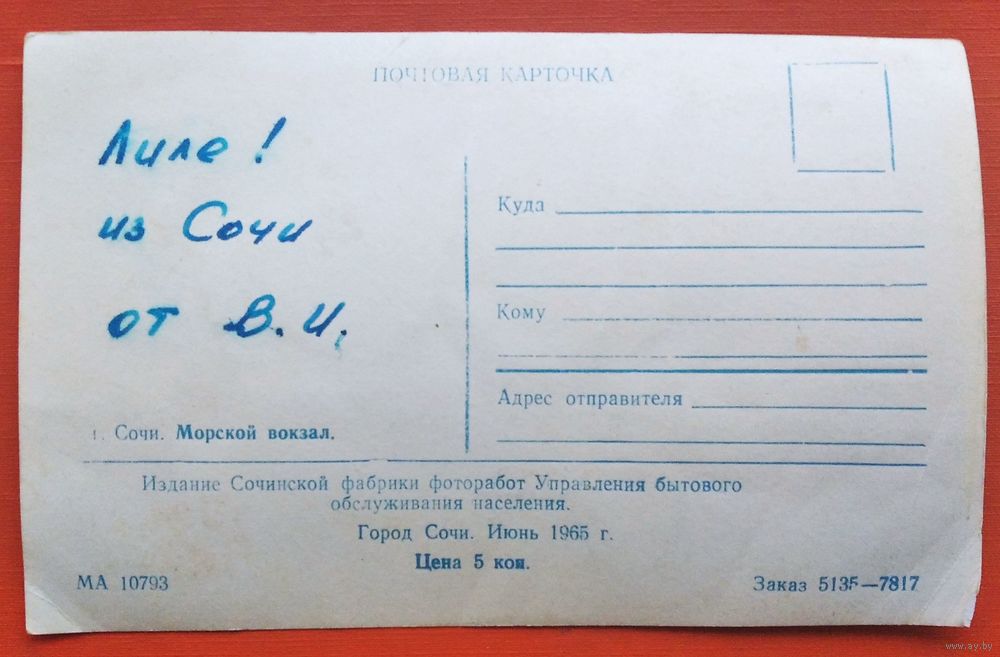 ПОЧТОВАЯ КАРТОЧКА
Лиле!
из Сочи
от В.И.
г. Сочи. Морской вокзал.
Куда
Кому
Адрес отправителя
Издание Сочинской фабрики фоторабот Управления бытового
обслуживания населения.
Город Сочи. Июнь 1965 г.
Цена 5 коп.
МА 10793
Заказ 5135—7817
www.ay.by